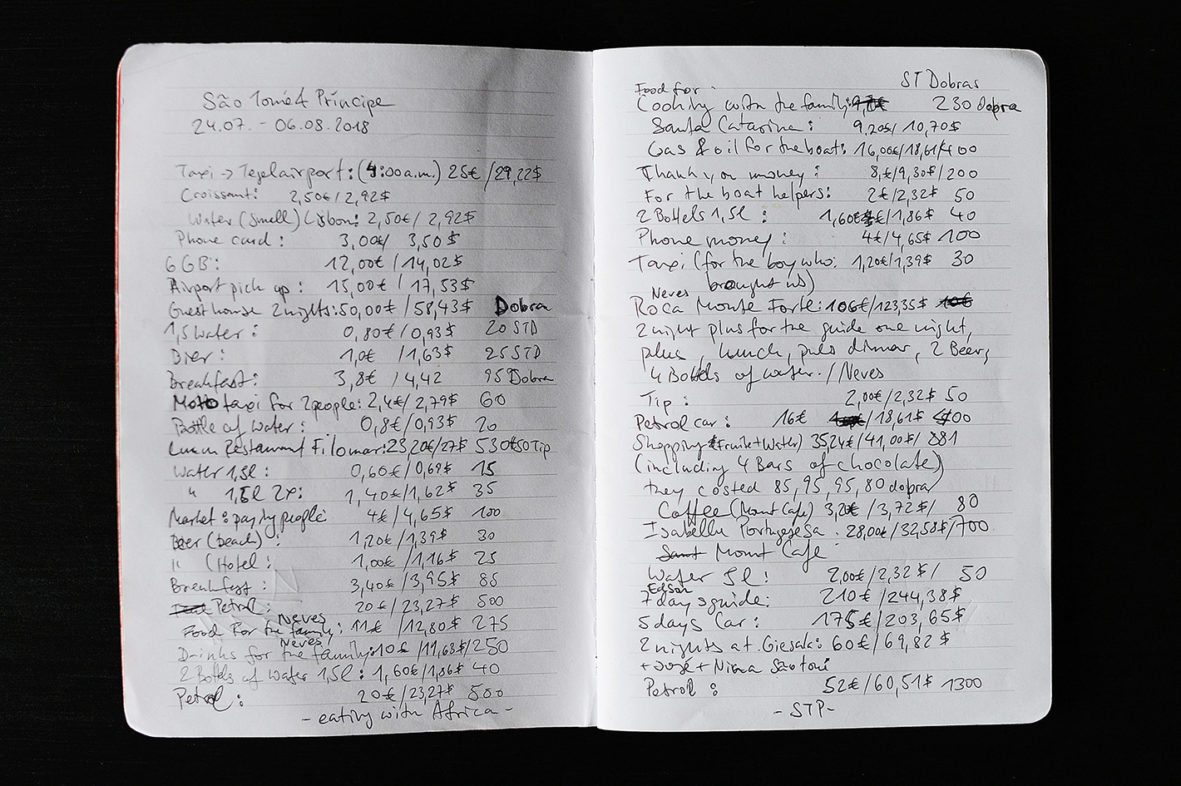 São Tomé & Príncipe
24.07. - 06.08.2018
Taxi → Tegelairport: (4:00a.m.) 25€ /29,22$
Croissant: 2,50€/2,92$
Water (small) Lisbon: 2,50€/2,92$
Phone card : 3,00€/ 3,50$
6 GB: 12,00€/14,02$
Airport pick up : 15,00€ / 17,53$
Guesthouse 2nights: 50,00€/58,43$ Dobra
1,5 Water : 0,80€/0,93$ 20 STD
Bier : 1,0€ /1,63$ 25 STD
Breakfast: 3,8€ / 4,42 95 Dobra
Moto taxi for 2people: 2,4€/2,79$ 60
Bottle of Water : 0,8€/0,93$ 20
Lunch Restaurant Filomar: 23,20€/27$ 530+50Tip
Water 1,5l : 0,60€/0,69$ 15
" 1,5l 2x: 1,40€/1,62$ 35
Market : people 4€/4,65$ 100
Beer (beach) : 1,20€/1,39$ 30
" (Hotel : 1,00€/1,16$ 25
Breakfast : 3,40€/3,95$ 85
Petrol : 20€/23,27$ 500
Neves
Food For the family : 11€ /12,80$ 275
Neves
Drinks for the family: 10€ /11,63$/250
2 Bottels of Water 1,5l : 1,60€/1,86$ 40
Petrol : 20€/23,27$ 500
- eating with Africa -
ST Dobras
Food for
Cooking with the family: 230 dobra
Santa Catarina : 9,20€/ 10,70$
Gas & oil for the boat: 16,00€/18,61$/400
Thank you money : 8,€/9,30$/200
For the boat helpers: 2€/2,32$ 50
2 Bottels 1,5l : 1,60€/1,86$ 40
Phone money : 4€/4,65$ 100
Taxi (for the boy who: 1,20€/1,39$ 30
brought us)
Neves
Roca Monte Forte: 106€/123,35$
2 night plus for the guide one night,
plus , lunch, plus dinnar, 2 Beer,
4 Bottels of water. /Neves
Tip : 2,00€/2,32$ 50
Petrol car : 16€ /18,61$ 400
Shopping (Fruit+Water) 35,24€/41,00$/ 881
(including 4 Bars of chocolate)
they costed 85, 95, 95, 80 dobra
Coffee (Mount Cafe) 3,20€ /3,72$/ 80
Isabella Portugegsa : 28,00€/32,58$/700
Mount Cafe
Water 5l : 2,00€/2,32$/ 50
Edson
7 days guide: 210€/244,38$
5 days Car : 175€/203,65$
2 nights at Giesela: 60€/69,82$
+ José + Nilma Saotomé
Petrol : 52€/60,51$ 1300
- STP -